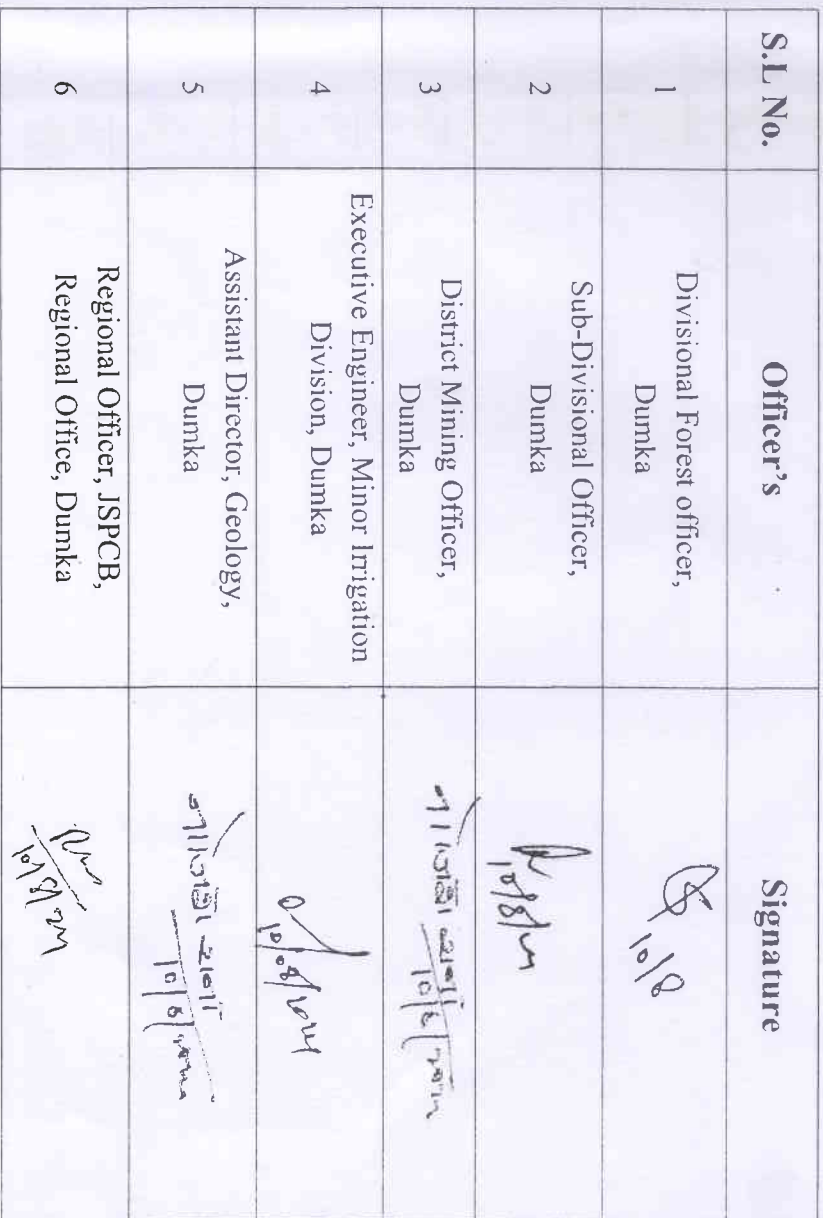 S.L No. Officer's Signature
1 Divisional Forest officer,
Dumka
10/8
2 Sub-Divisional Officer,
Dumka
10/8/
3 District Mining Officer,
Dumka
10/8/
4 Executive Engineer, Minor Irrigation
Division, Dumka
10/08/
5 Assistant Director, Geology,
Dumka
10/8/
6 Regional Officer, JSPCB,
Regional Office, Dumka
10/8/